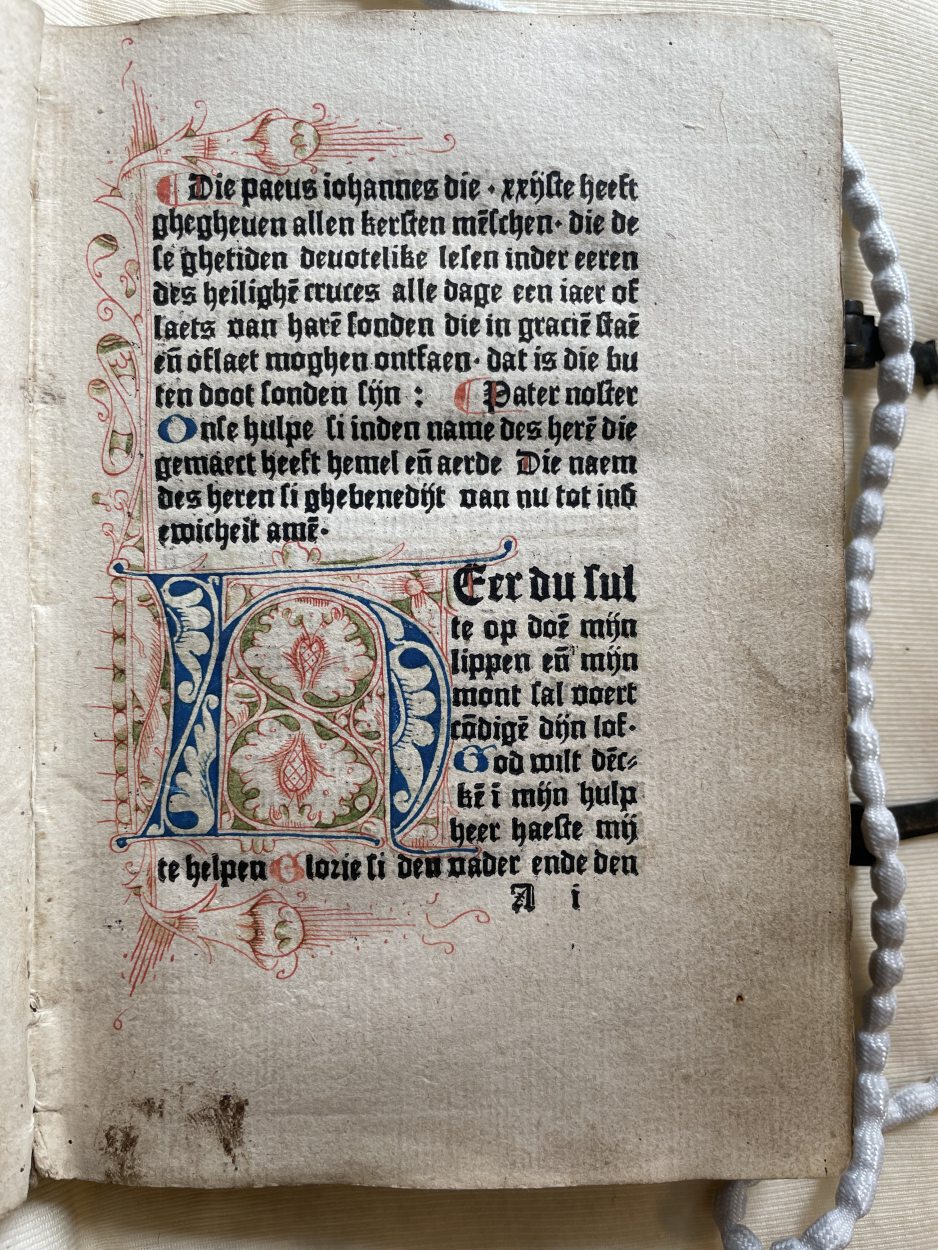 ¶ Die paeus iohannes die · xxijste heeft
ghegheuen allen kersten mēschen· die de
se ghetiden deuotelike lesen inder eeren
des heilighē cruces alle dage een iaer of
laets van harē sonden die in graciē staē
eñ oflaet moghen ontfaen· dat is die bu
ten doot sonden sijn : ¶ Pater noster
Onse hulpe si inden name des herē die
gemaect heeft hemel eñ aerde Die naem
des heren si ghebenedijt van nu tot inđ
ewicheit amē·
HEer du sul
te op doē mijn
lippen eñ mijn
mont sal voert
cōdigē dijn lof·
God wilt dēc⸗
kē ī mijn hulp
heer haeste mij
te helpen Glorie si den vader ende den
A i